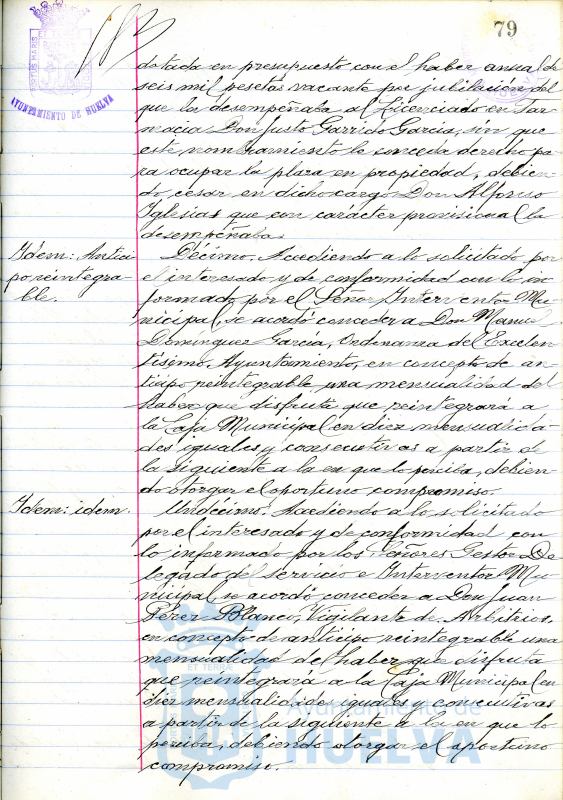 79
AYUNTAMIENTO DE HUELVA
dotada en presupuesto con el haber anual de
seis mil pesetas vacante por jubilación del
que la desempeñaba al Licenciado en Far
macia Don Justo Garrido Garcia, sin que
este nombramiento le conceda derecho pa
ra ocupar la plaza en propiedad, debien
do cesar en dicho cargo Don Alfonso
Iglesias que con carácter provisional la
desempeñaba.
Idem: Antici
po reintegra
ble.
Décimo. Accediendo a lo solicitado por
el interesado y de conformidad con lo in
formado por el Señor Interventor Mu
nicipal, se acordó conceder a Don Manuel
Dominguez Garcia, Ordenanza del Excelen
tisimo Ayuntamiento, en concepto de an
ticipo reintegrable una mensualidad del
haber que disfruta que reintegrará a
la Caja Municipal en diez mensualida
des iguales y consecutivas a partir de
la siguiente a la en que lo perciba, debien
do otorgar el oportuno compromiso.
Idem: idem.
Undécimo. Accediendo a lo solicitado
por el interesado y de conformidad con
lo informado por los Señores Gestor De
legado del Servicio e Interventor Mu
nicipal se acordó conceder a Don Juan
Pérez Blanco, Vigilante de Arbitrios,
en concepto de anticipo reintegrable una
mensualidad del haber que disfruta
que reintegrará a la Caja Municipal en
diez mensualidades iguales y consecutivas
a partir de la siguiente a la en que lo
perciba, debiendo otorgar el oportuno
compromiso.
Ayuntamiento de
HUELVA